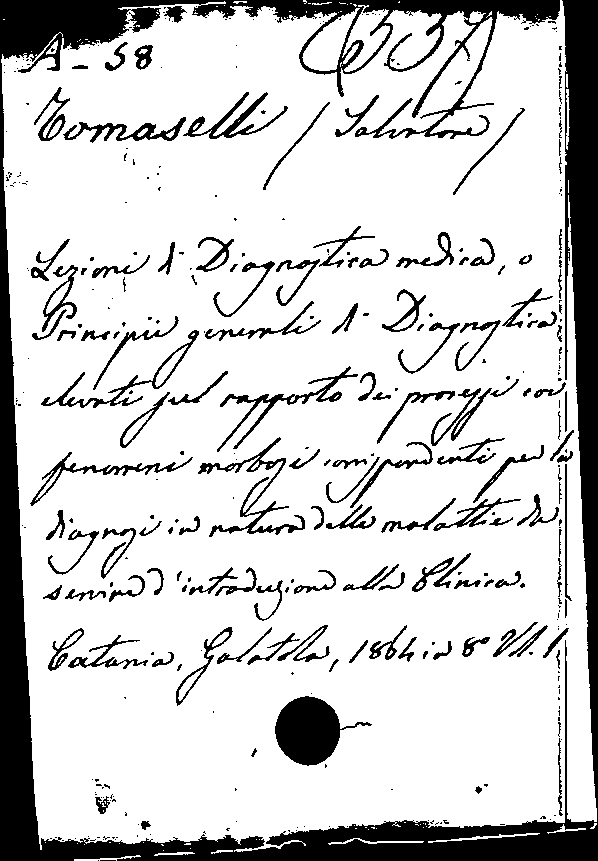 A-58 (537)
Tomaselli (Salvatore)
Lezioni di Diagnostica medica, o
Principii generali di Diagnostica
elevati sul rapporto dei processi coi
fenomeni morbosi corrispondenti per la
diagnosi in natura delle malattie da
servire d'introduzione alla Clinica.
Catania, Galatola, 1864 in 8° Vol. 1.